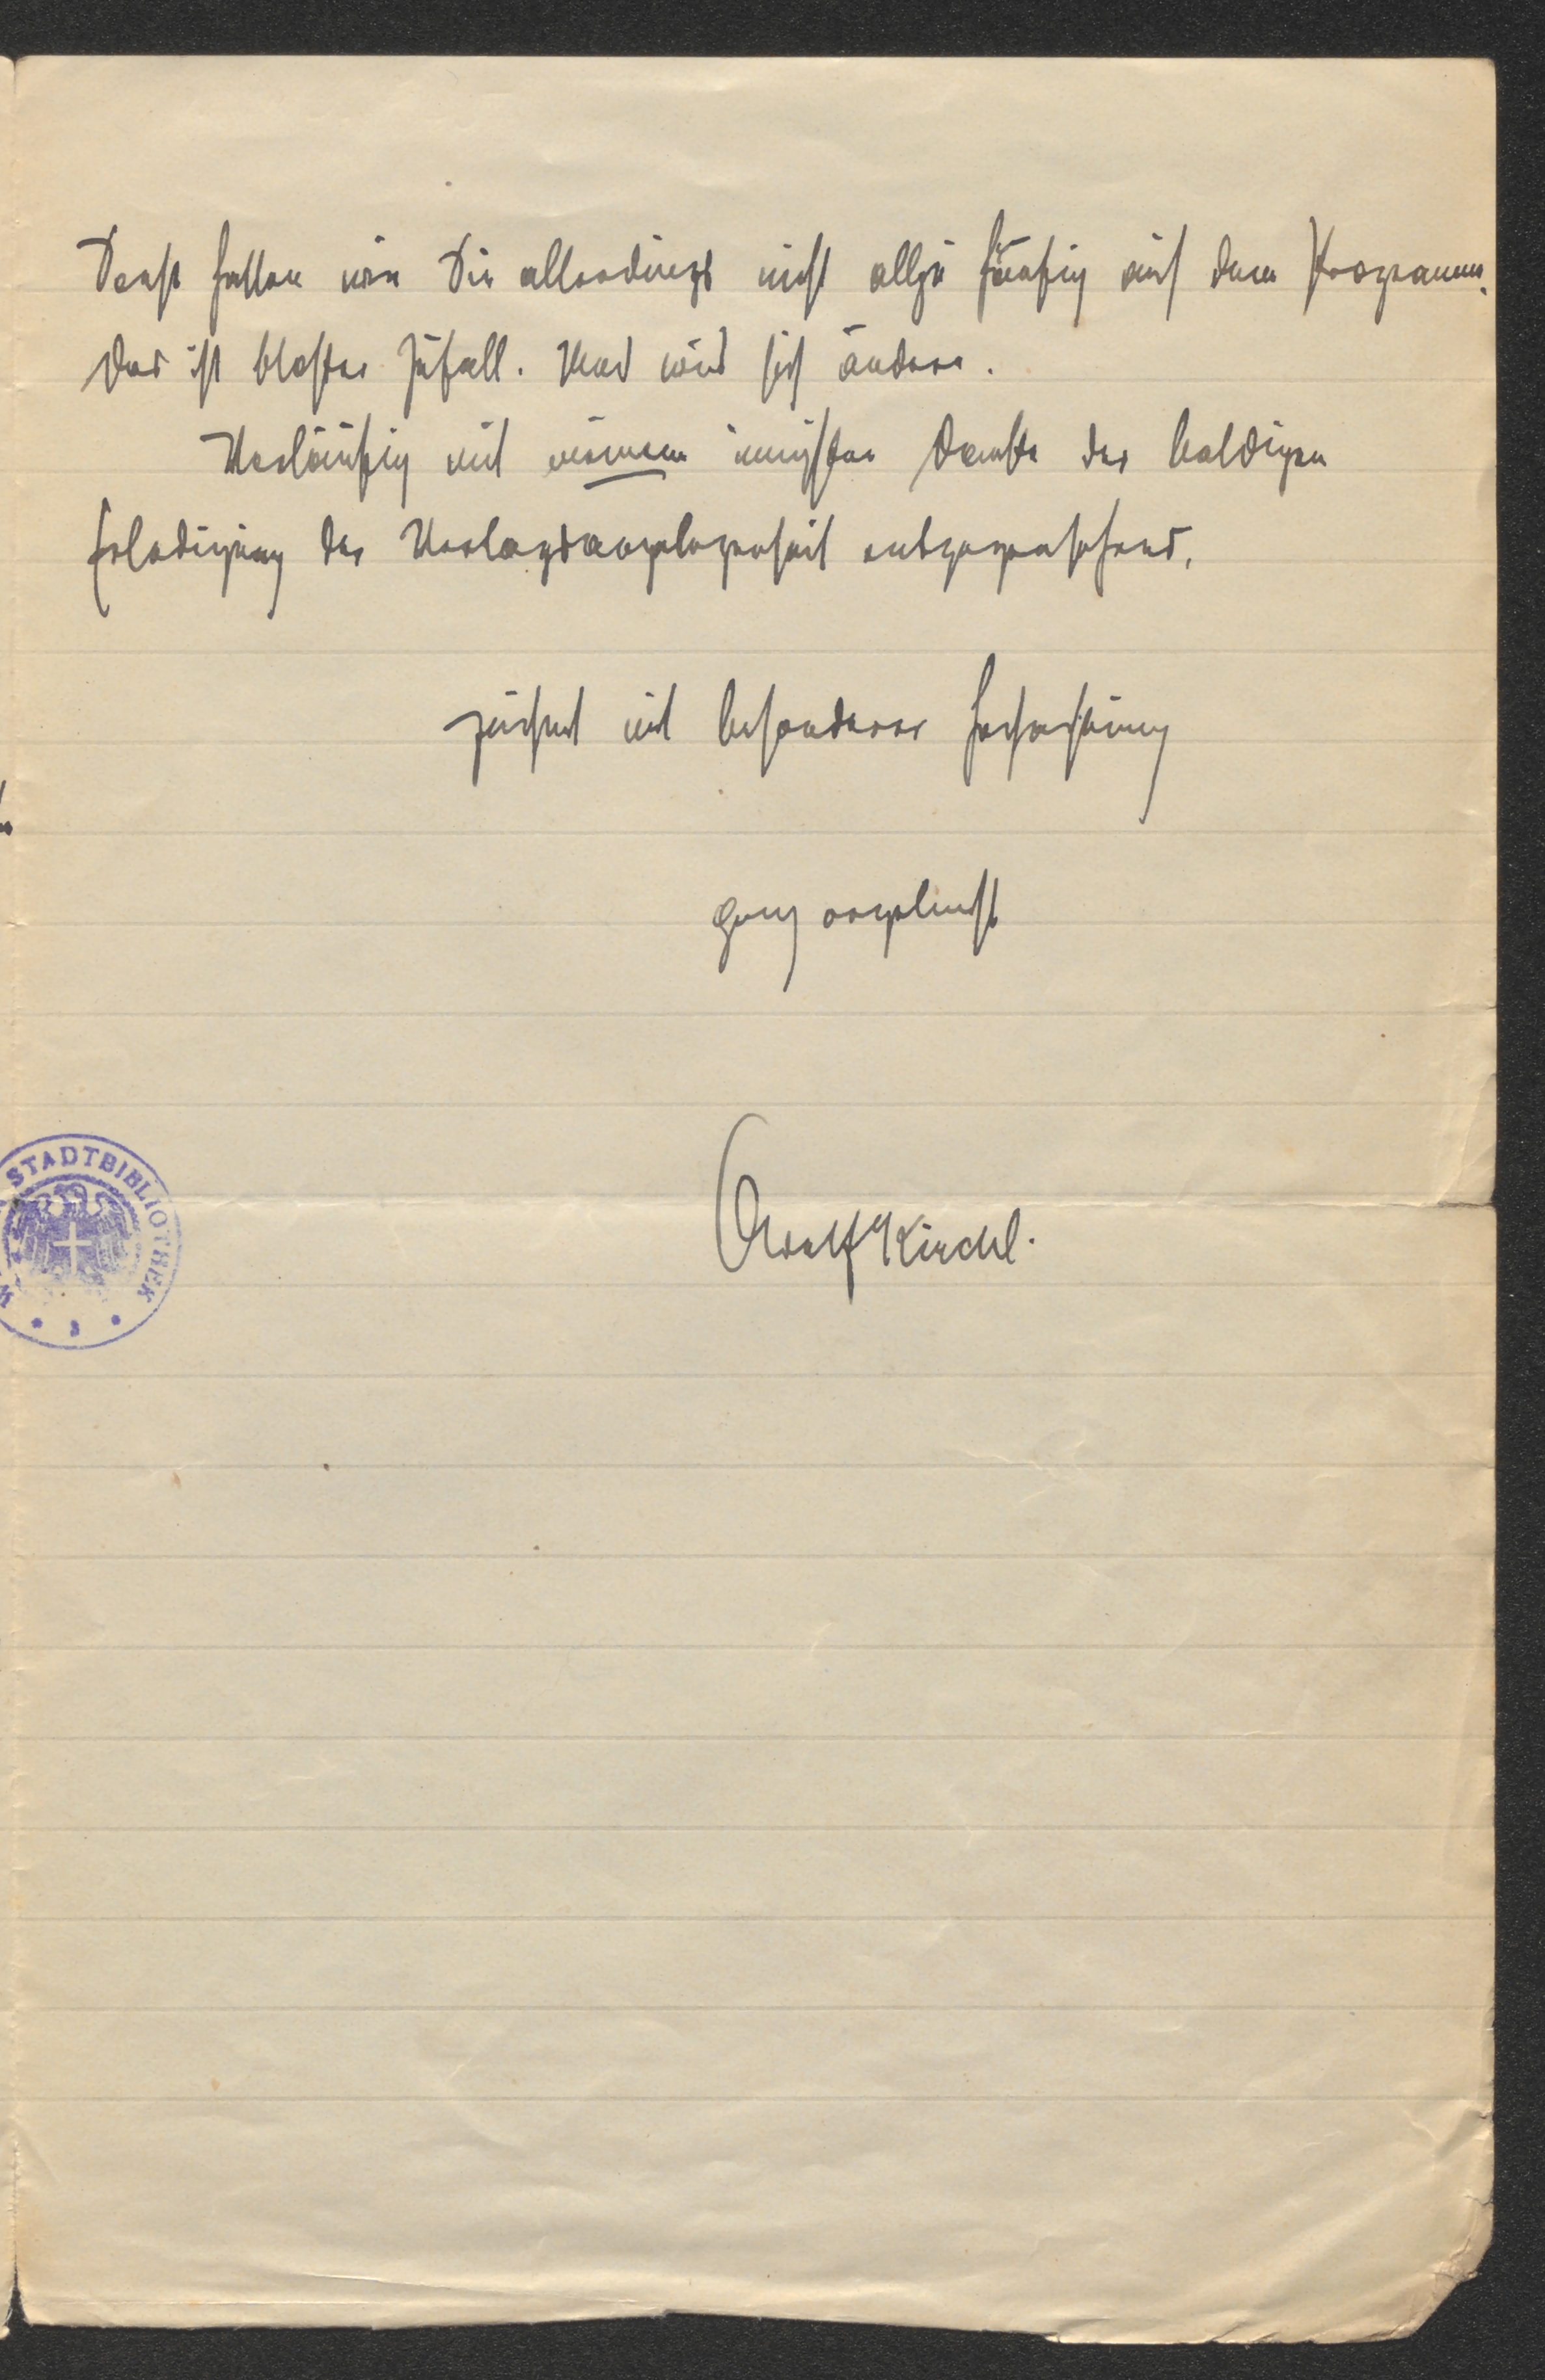 Sonst hatten wir Sie allerdings nicht allzu häufig auf dem Programm.
Das ist bloßer Zufall. Und wird sich ändern.
Vorläufig mit meinem innigsten Danke der baldigen
Erledigung der Verlagsangelegenheit entgegensehend,
zeichnet mit besonderer Hochachtung
ganz ergebenst
Adolf Kirchl.
STADTBIBLIOTHEK